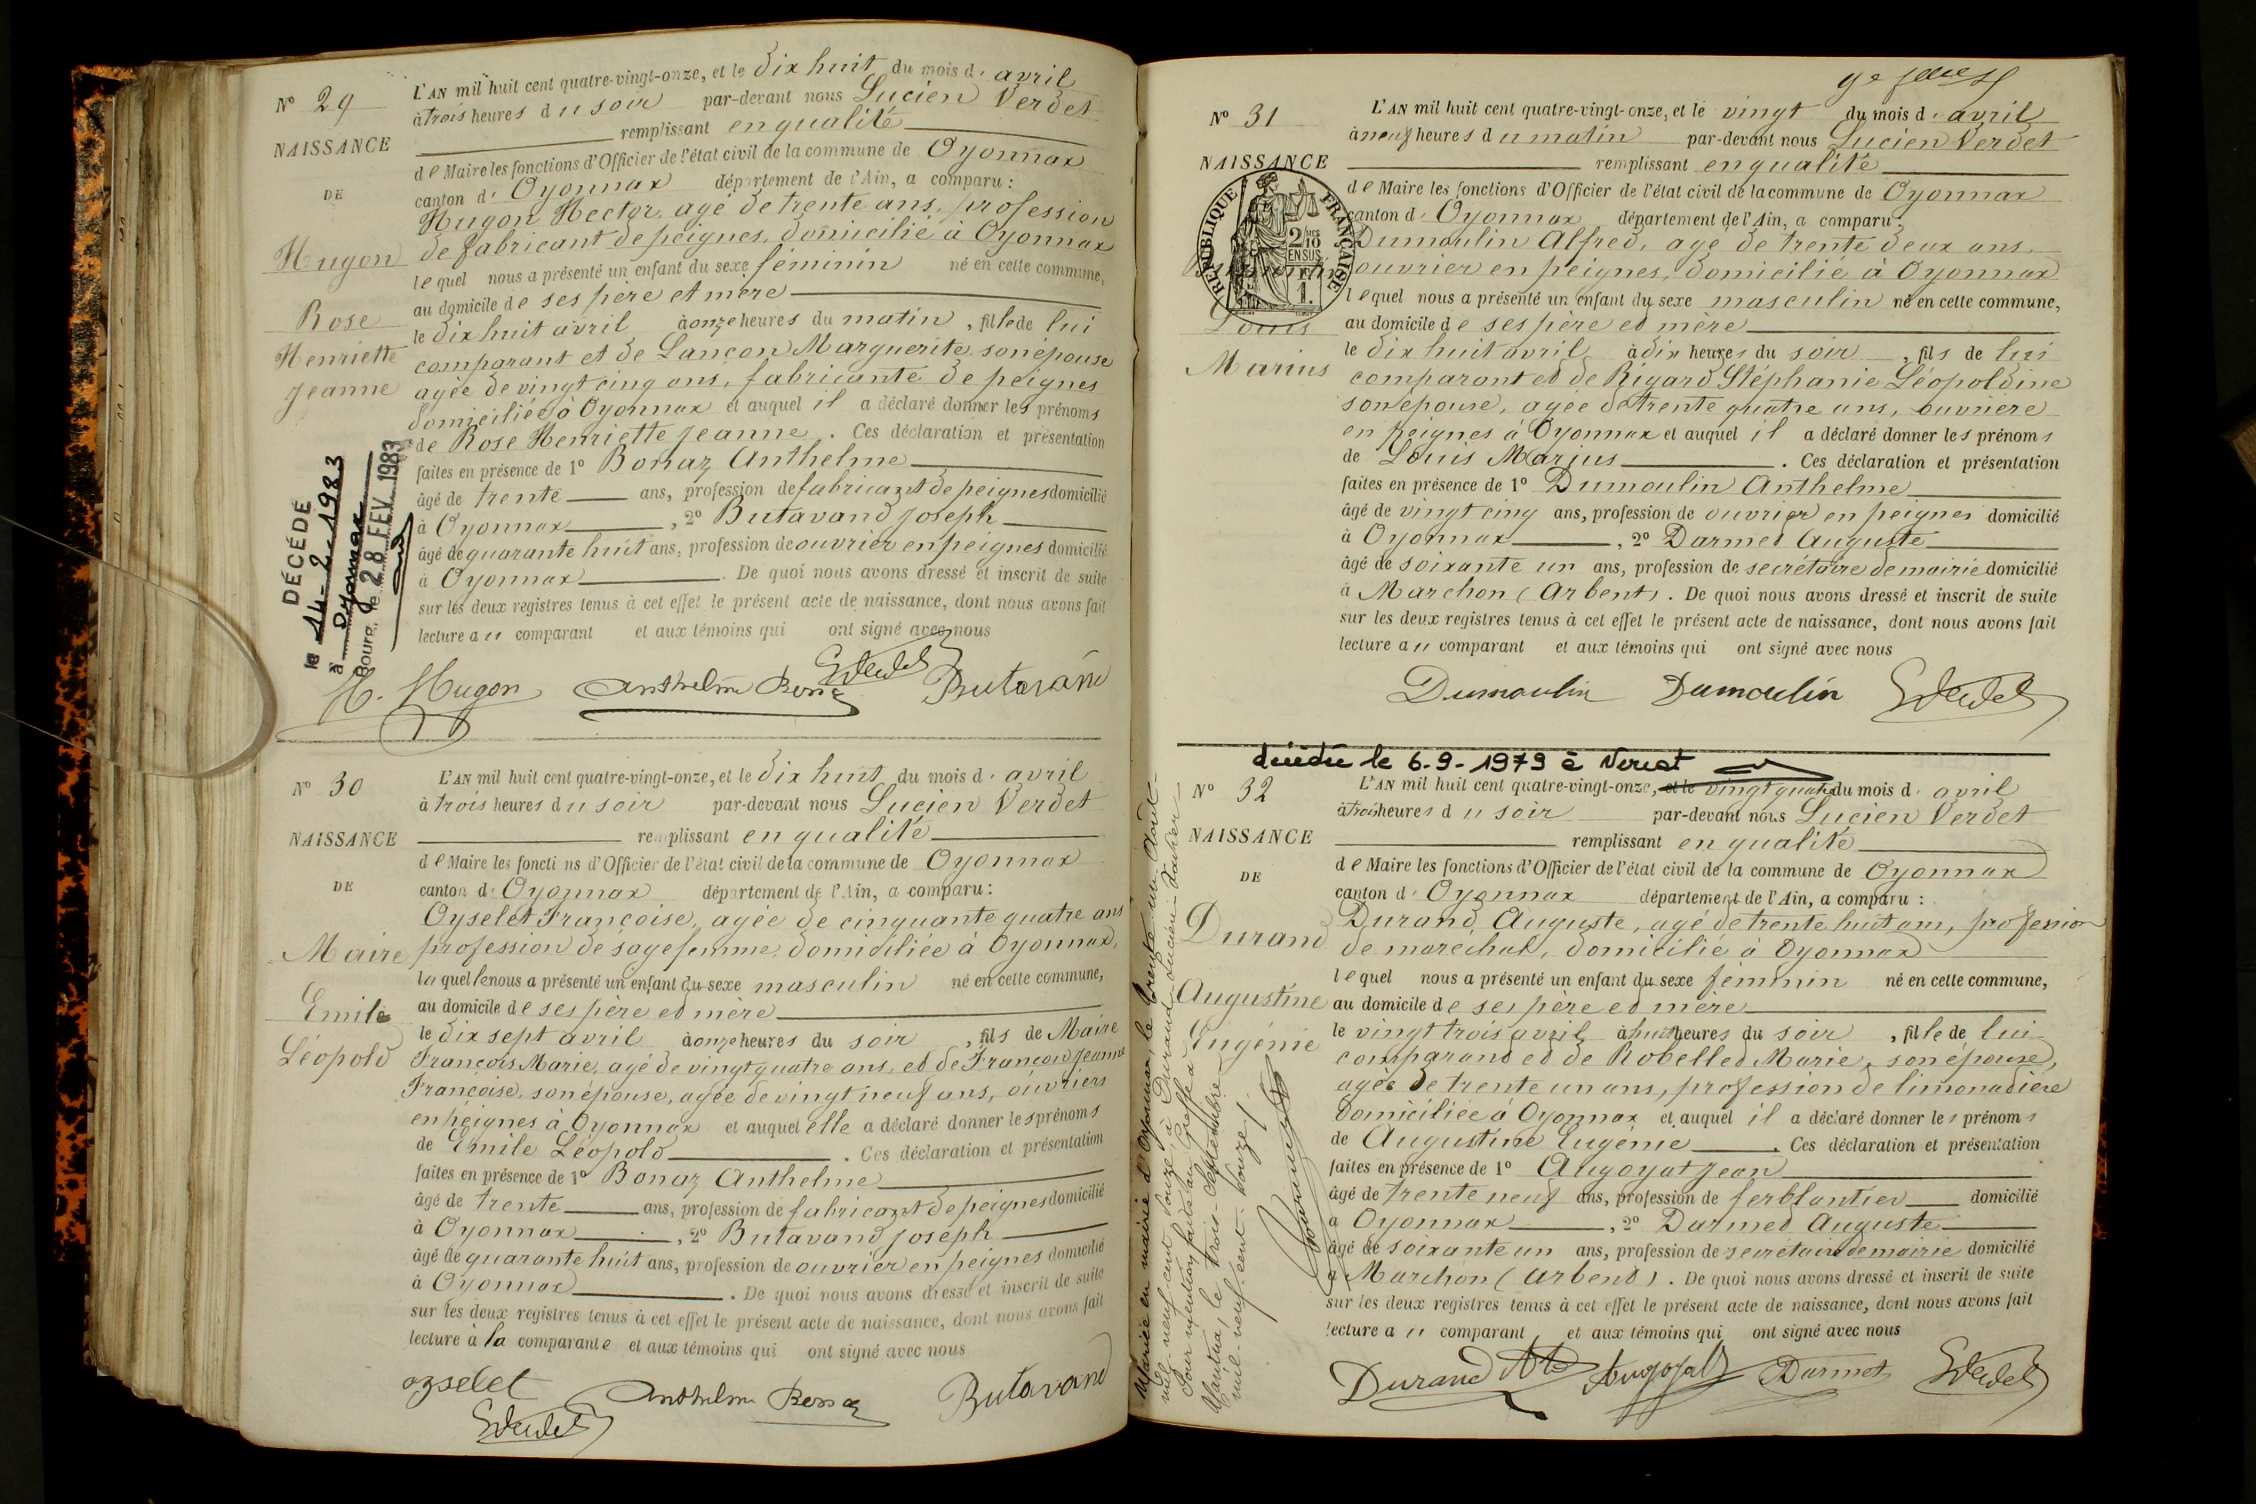 N° 29
NAISSANCE
DE
Hugon
Rose
Henriette
Jeanne
DÉCÉDÉ
le 14-2-1983
à Oyonnax
Bourg, le 28 FEV. 1983
L'AN mil huit cent quatre-vingt-onze, et le dix huit du mois d' avril
à trois heures du soir par-devant nous Lucien Verdet
remplissant en qualité
de Maire les fonctions d'Officier de l'état civil de la commune de Oyonnax
canton d' Oyonnax département de l'Ain, a comparu :
Hugon Hector, agé de trente ans, profession
de fabricant de peignes, domicilié à Oyonnax
lequel nous a présenté un enfant du sexe féminin né en cette commune,
au domicile de ses père et mère
le dix huit avril à onze heures du matin, fille de lui
comparant et de Lançon Marguerite son épouse
agée de vingt cinq ans, fabricante de peignes
domiciliée à Oyonnax et auquel il a déclaré donner les prénoms
de Rose Henriette Jeanne. Ces déclaration et présentation
faites en présence de 1° Bonaz Anthelme
âgé de trente ans, profession de fabricant de peignes domicilié
à Oyonnax, 2° Butavand Joseph
âgé de quarante huit ans, profession de ouvrier en peignes domicilié
à Oyonnax. De quoi nous avons dressé et inscrit de suite
sur les deux registres tenus à cet effet le présent acte de naissance, dont nous avons fait
lecture au comparant et aux témoins qui ont signé avec nous
H. Hugon Anthelme Bonaz Verdet Butavand
N° 30
NAISSANCE
DE
Maire
Emile
Léopold
L'AN mil huit cent quatre-vingt-onze, et le dix huit du mois d' avril
à trois heures du soir par-devant nous Lucien Verdet
remplissant en qualité
de Maire les fonctions d'Officier de l'état civil de la commune de Oyonnax
canton d' Oyonnax département de l'Ain, a comparu :
Oyselet Françoise, agée de cinquante quatre ans
profession de sage femme, domiciliée à Oyonnax,
laquelle nous a présenté un enfant du sexe masculin né en cette commune,
au domicile de ses père et mère
le dix sept avril à onze heures du soir, fils de Maire
François Marie, agé de vingt quatre ans, et de Françon Jeanne
Françoise, son épouse, agée de vingt neuf ans, ouvriers
en peignes à Oyonnax et auquel elle a déclaré donner les prénoms
de Emile Léopold. Ces déclaration et présentation
faites en présence de 1° Bonaz Anthelme
âgé de trente ans, profession de fabricant de peignes domicilié
à Oyonnax, 2° Butavand Joseph
âgé de quarante huit ans, profession de ouvrier en peignes domicilié
à Oyonnax. De quoi nous avons dressé et inscrit de suite
sur les deux registres tenus à cet effet le présent acte de naissance, dont nous avons fait
lecture à la comparante et aux témoins qui ont signé avec nous
ozselet Anthelme Bonaz Butavand
Verdet
N° 31
NAISSANCE
RÉPUBLIQUE FRANÇAISE
2/10
EN SUS
1 F.
Louis
Marius
L'AN mil huit cent quatre-vingt-onze, et le vingt du mois d' avril
à neuf heures du matin par-devant nous Lucien Verdet
remplissant en qualité
de Maire les fonctions d'Officier de l'état civil de la commune de Oyonnax
canton d' Oyonnax département de l'Ain, a comparu :
Dumoulin Alfred, agé de trente deux ans,
ouvrier en peignes, domicilié à Oyonnax
lequel nous a présenté un enfant du sexe masculin né en cette commune,
au domicile de ses père et mère
le dix huit avril à dix heures du soir, fils de lui
comparant et de Rigard Stéphanie Léopoldine
son épouse, agée de trente quatre ans, ouvrière
en peignes à Oyonnax et auquel il a déclaré donner les prénoms
de Louis Marius. Ces déclaration et présentation
faites en présence de 1° Dumoulin Anthelme
âgé de vingt cinq ans, profession de ouvrier en peignes domicilié
à Oyonnax, 2° Darmet Auguste
âgé de soixante un ans, profession de secrétaire de mairie domicilié
à Marchon (Arbent). De quoi nous avons dressé et inscrit de suite
sur les deux registres tenus à cet effet le présent acte de naissance, dont nous avons fait
lecture au comparant et aux témoins qui ont signé avec nous
Dumoulin Dumoulin Verdet
décédée le 6-9-1979 à Neriat
N° 32
NAISSANCE
DE
Durand
Augustine
Eugénie
L'AN mil huit cent quatre-vingt-onze, et le vingt quatre du mois d' avril
à trois heures du soir par-devant nous Lucien Verdet
remplissant en qualité
de Maire les fonctions d'Officier de l'état civil de la commune de Oyonnax
canton d' Oyonnax département de l'Ain, a comparu :
Durand Auguste, agé de trente huit ans, profession
de maréchal, domicilié à Oyonnax
lequel nous a présenté un enfant du sexe féminin né en cette commune,
au domicile de ses père et mère
le vingt trois avril à huit heures du soir, fille de lui
comparant et de Robellet Marie, son épouse,
agée de trente un ans, profession de limonadière
domiciliée à Oyonnax et auquel il a déclaré donner les prénoms
de Augustine Eugénie. Ces déclaration et présentation
faites en présence de 1° Augoyat Jean
âgé de trente neuf ans, profession de ferblantier domicilié
à Oyonnax, 2° Darmet Auguste
âgé de soixante un ans, profession de secrétaire de mairie domicilié
à Marchon (Arbent). De quoi nous avons dressé et inscrit de suite
sur les deux registres tenus à cet effet le présent acte de naissance, dont nous avons fait
lecture au comparant et aux témoins qui ont signé avec nous
Durand Augoyat Darmet Verdet
Mariée en mairie d'Oyonnax, le trente-un-Août-
mil-neuf-cent-douze, à Durand Lucien
Pour mention faite au Greffe à
Nantua, le trois-Septembre
mil-neuf-cent-douze.